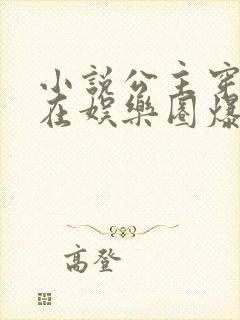 小說公主穿
在娛樂圈爆
高登